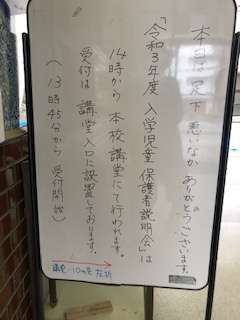 本日は足下の悪いなか ありがとうございます。
「令和3年度 入学児童 保護者説明会」は
14時から 本校講堂にて行われます。
受付は 講堂入口に設置しております。
(13時45分から 受付開始)
直進→10m先 左折